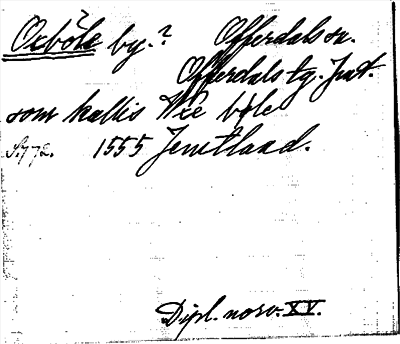 Oxböle by.? Offerdals sn.
Offerdals tg. Jmt.
som kallis Vxe bøle
S. 772. 1555 Jemtland.
Dipl. norv. XV.